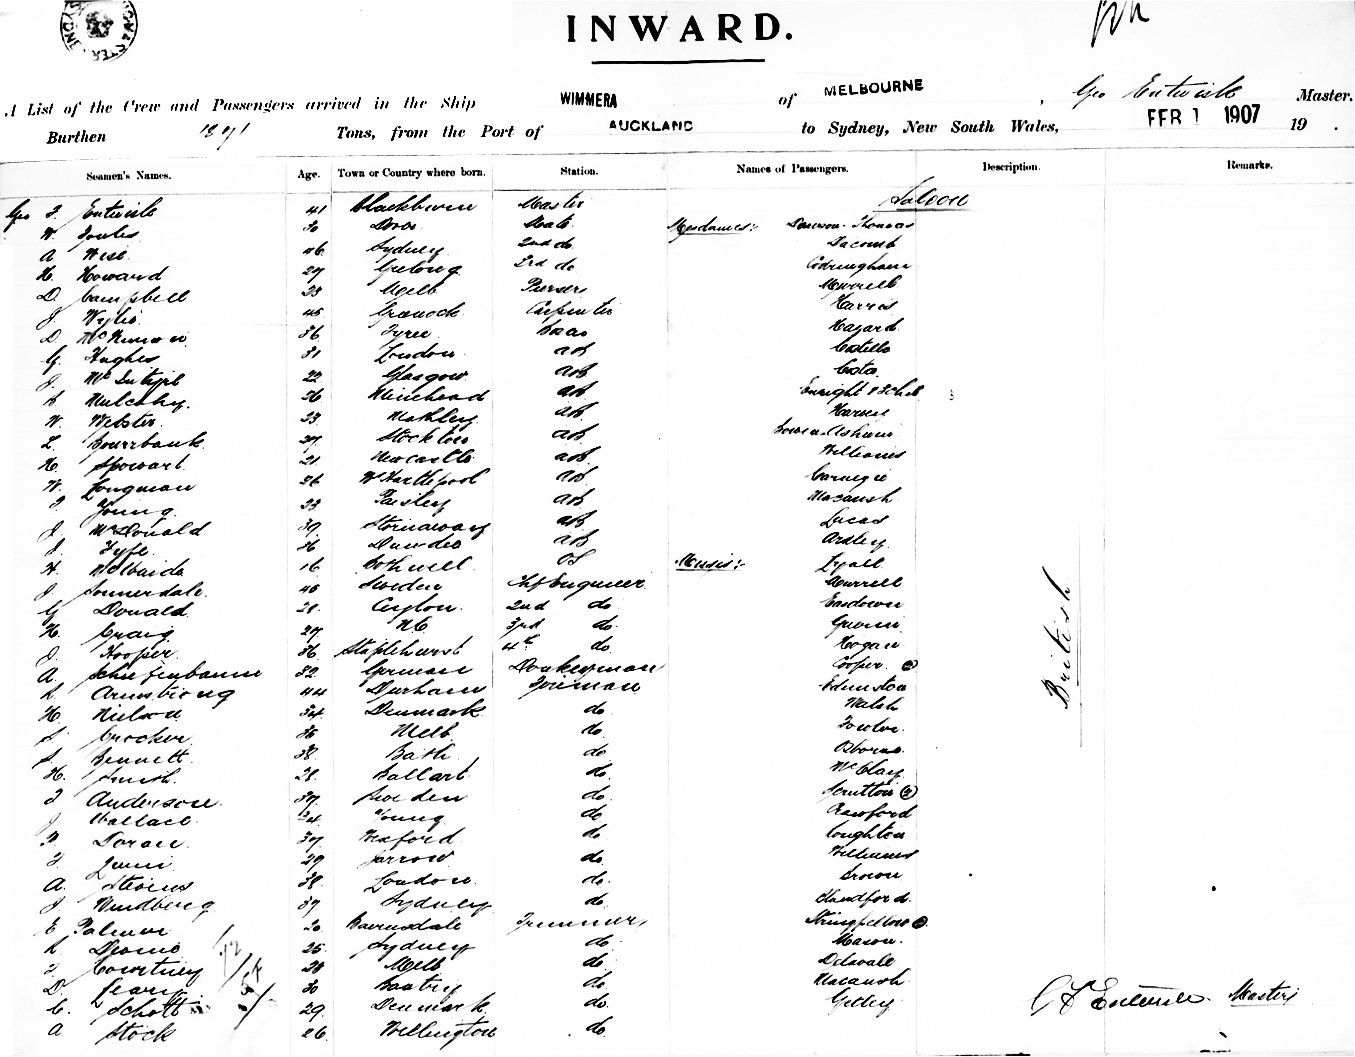 INWARD.
A List of the Crew and Passengers arrived in the Ship WIMMERA of MELBOURNE, Geo Entwisle Master.
Burthen 1871 Tons, from the Port of AUCKLAND to Sydney, New South Wales, FEB 1 1907 19 .
Seamen's Names. Age. Town or Country where born. Station. Names of Passengers. Description. Remarks.
Saloon
Geo F. Entwisle 41 Blackburn Master
W. 30 Mate Mesdames:- Dawson-Thomas
A West 46 Sydney 2nd do Dacomb
H. Howard 27 Geelong 3rd do Codringham
D. Campbell 23 Melb Purser Morrell
J. Wylie 45 Greenock Carpenter Harris
D. McKinnon 36 Tyree Hazard
G. Hughes 31 London AB Costello
J. 22 Glasgow AB Costa
Mulcahy. 26 Minehead AB Enright & 3 Chil
W. Webster 23 AB
L. Bourrbank 27 Stockton AB
H. Spowart 21 Newcastle AB Williams
W. Longman 26 W Hartlepool AB Carnegie
Young 23 Paisley AB Macansh
J. McDonald 39 Stornaway AB Lucas
J. Fyfe 36 Dundee AB Ardley
16 Bothwell OS Messrs:- Lyall
J. Sonnerdale 45 Sweden Chf Engineer Morrell
G Donald 28 Ceylon 2nd do Easdown
H. Craig 27 3rd do
J. Hooper 36 Staplehurst 4th do Hogan
A. 32 German Donkeyman Cooper
Armstrong 44 Durham Fireman Edmiston
H. Nielson 34 Denmark do Walsh
S. Crocker 35 Melb do Fowler
S. Bennett 38 Bath do Osborne
H. Smith 28 Ballart do McClay
F Anderson 37 Sweden do Scrutton (2)
J Wallace 24 Young do Crawford
Doran 37 Wexford do Loughton
Quinn 29 Jarrow do Williams
A. Stevens 38 London do Brown
J Windberg 37 Sydney do Handford
E Palmer 20 Bairnsdale Trimmer Stringfellow
25 Sydney do Mason.
Courtney 28 Melb do Delavale
D. Geary 30 do Macansh
C. Schott 29 Denmark do Gilley
A Stock 26 Wellington do
British
G F Entwisle Master